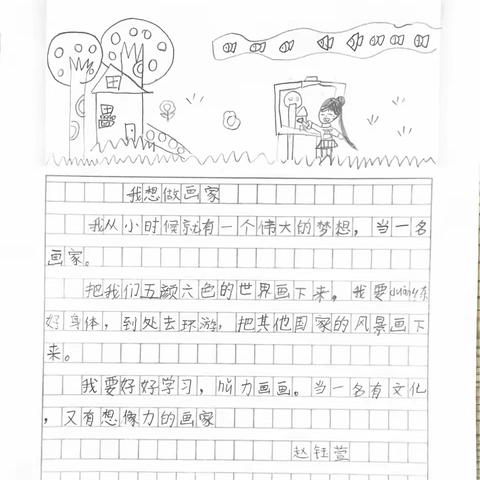 我想做画家
我从小时候就有一个伟大的梦想，当一名
画家。
把我们五颜六色的世界画下来。我要duàn练
好身体，到处去环游，把其他国家的风景画下
来。
我要好好学习，nǔ力画画。当一名有文化
，又有想像力的画家
赵钰萱